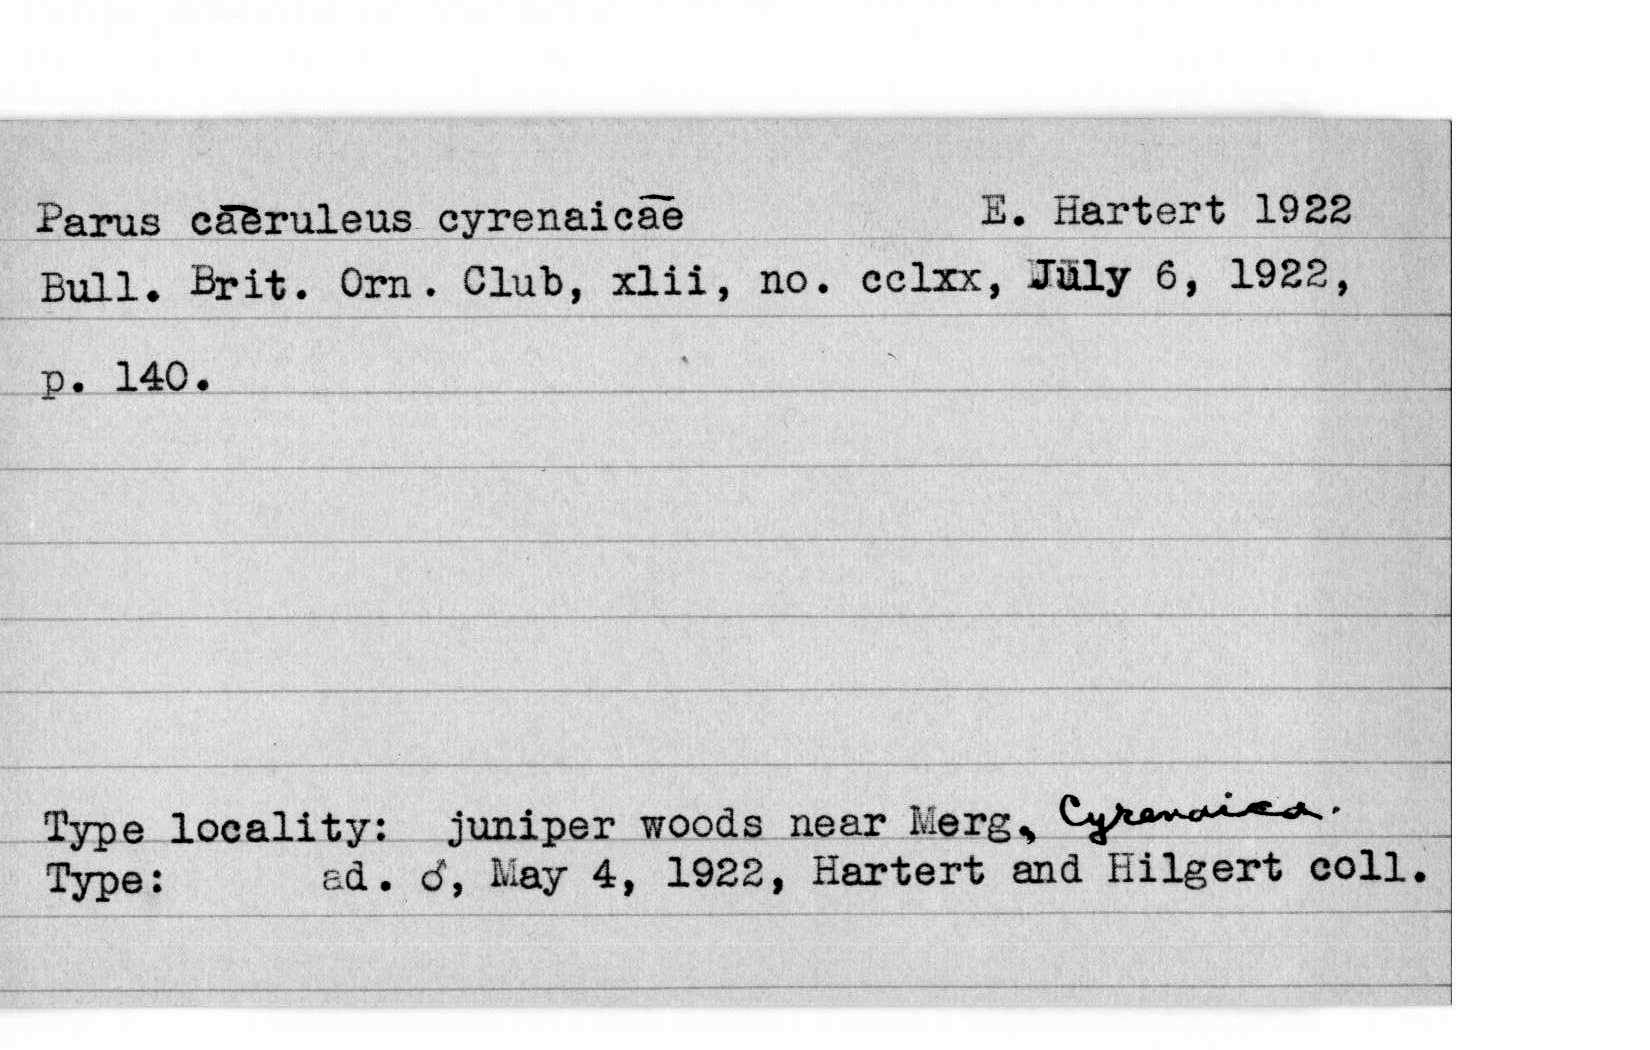 Parus cæruleus cyrenaicæ E. Hartert 1922
Bull. Brit. Orn. Club, xlii, no. cclxx, July 6, 1922,
p. 140.
Type locality: juniper woods near Merg, Cyrenaica.
Type: ad. ♂, May 4, 1922, Hartert and Hilgert coll.